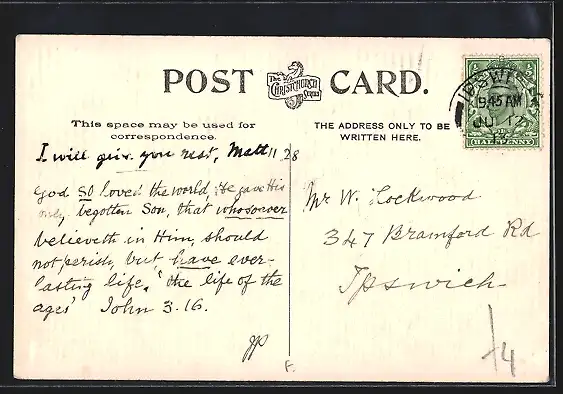 POST CARD.
The
CHRISTCHURCH
Series
This space may be used for
correspondence.
THE ADDRESS ONLY TO BE
WRITTEN HERE.
IPSWICH
9.45 AM
JU 12
HALFPENNY
I will give you rest, Matt 11.28
God so loved the world, He gave His
only begotten Son, that whosoever
believeth in Him, should
not perish, but have ever-
lasting life, "the life of the
ages" John 3.16.
Mr W. Lockwood
347 Bramford Rd
Ipswich